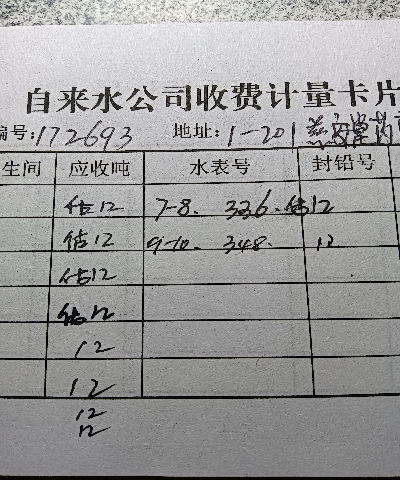 自来水公司收费计量卡片
编号:172693 地址:1-201
生间 应收吨 水表号 封铅号
估12 7-8. 336. 估12
估12 9-10. 348. 12
估12
估12
12
12
12
12